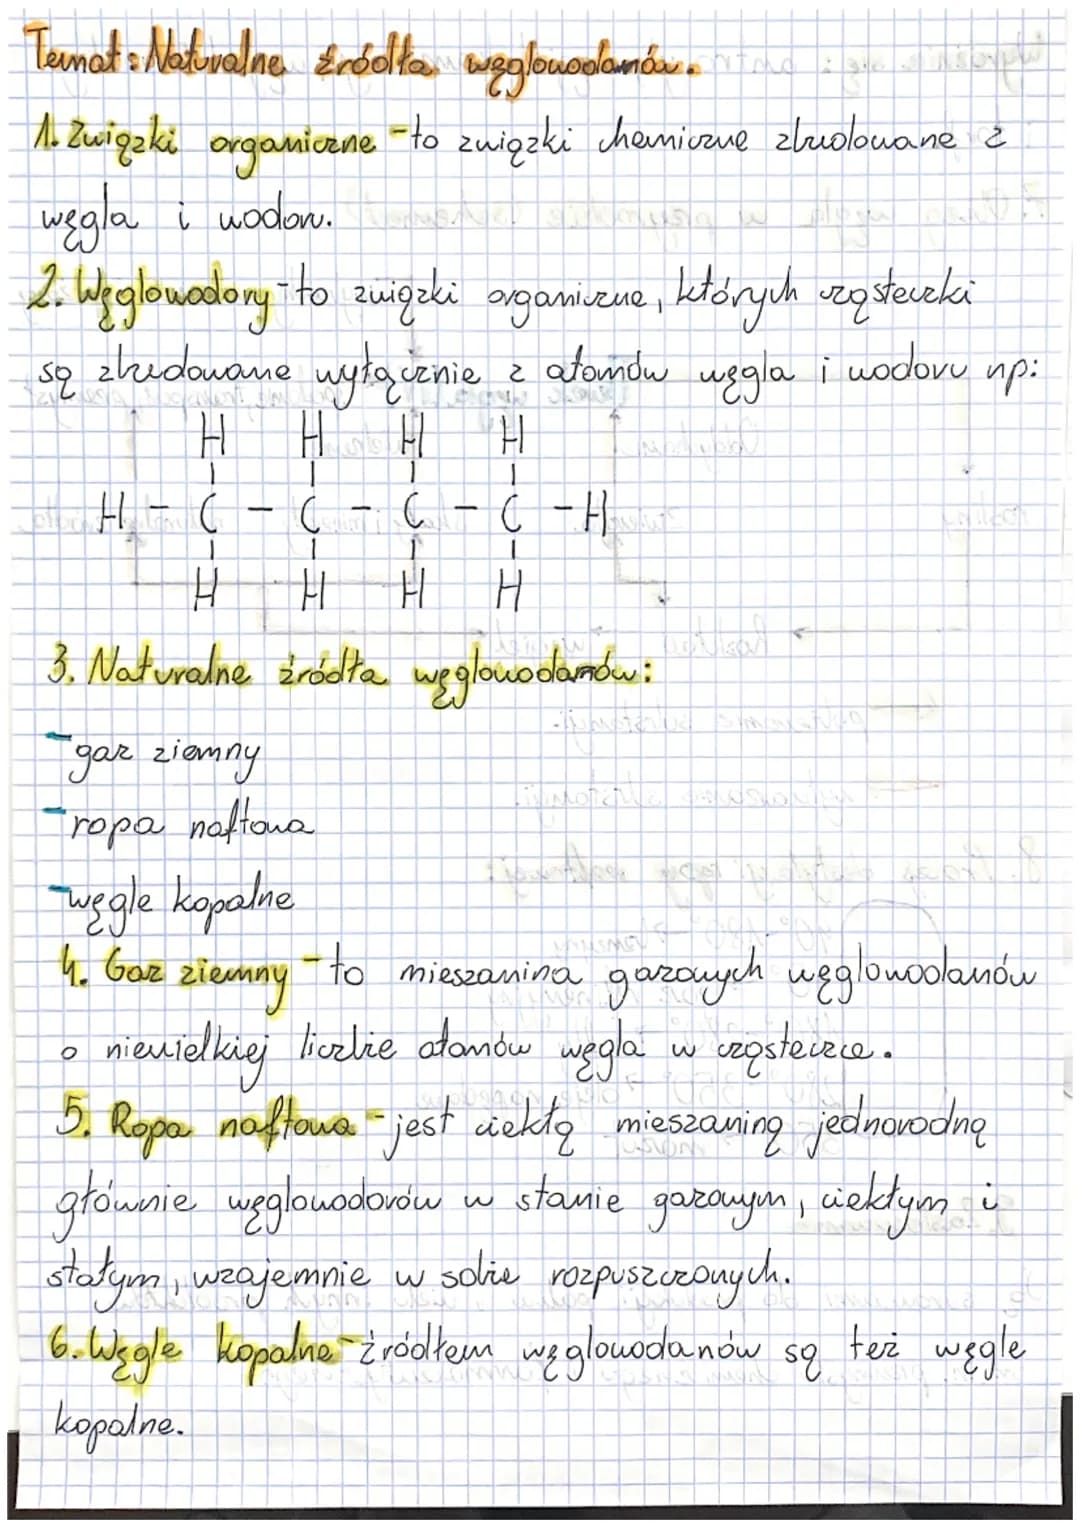 Temat: Naturalne źródła węglowodanów.
1. Związki organiczne - to związki chemiczne zbudowane z
węgla i wodoru.
2. Węglowodory - to związki organiczne, których cząsteczki
są zbudowane wyłącznie z atomów węgla i wodoru np:
H H H H
H - C - C - C - C - H
H H H H
3. Naturalne źródła węglowodanów:
- gaz ziemny
- ropa naftowa
- węgle kopalne
4. Gaz ziemny - to mieszanina gazowych węglowodanów
o niewielkiej liczbie atomów węgla w cząsteczce.
5. Ropa naftowa - jest ciekłą mieszaniną jednorodną
głównie węglowodorów w stanie gazowym, ciekłym i
stałym, wzajemnie w sobie rozpuszczonych.
6. Węgle kopalne - źródłem węglowodanów są też węgle
kopalne.